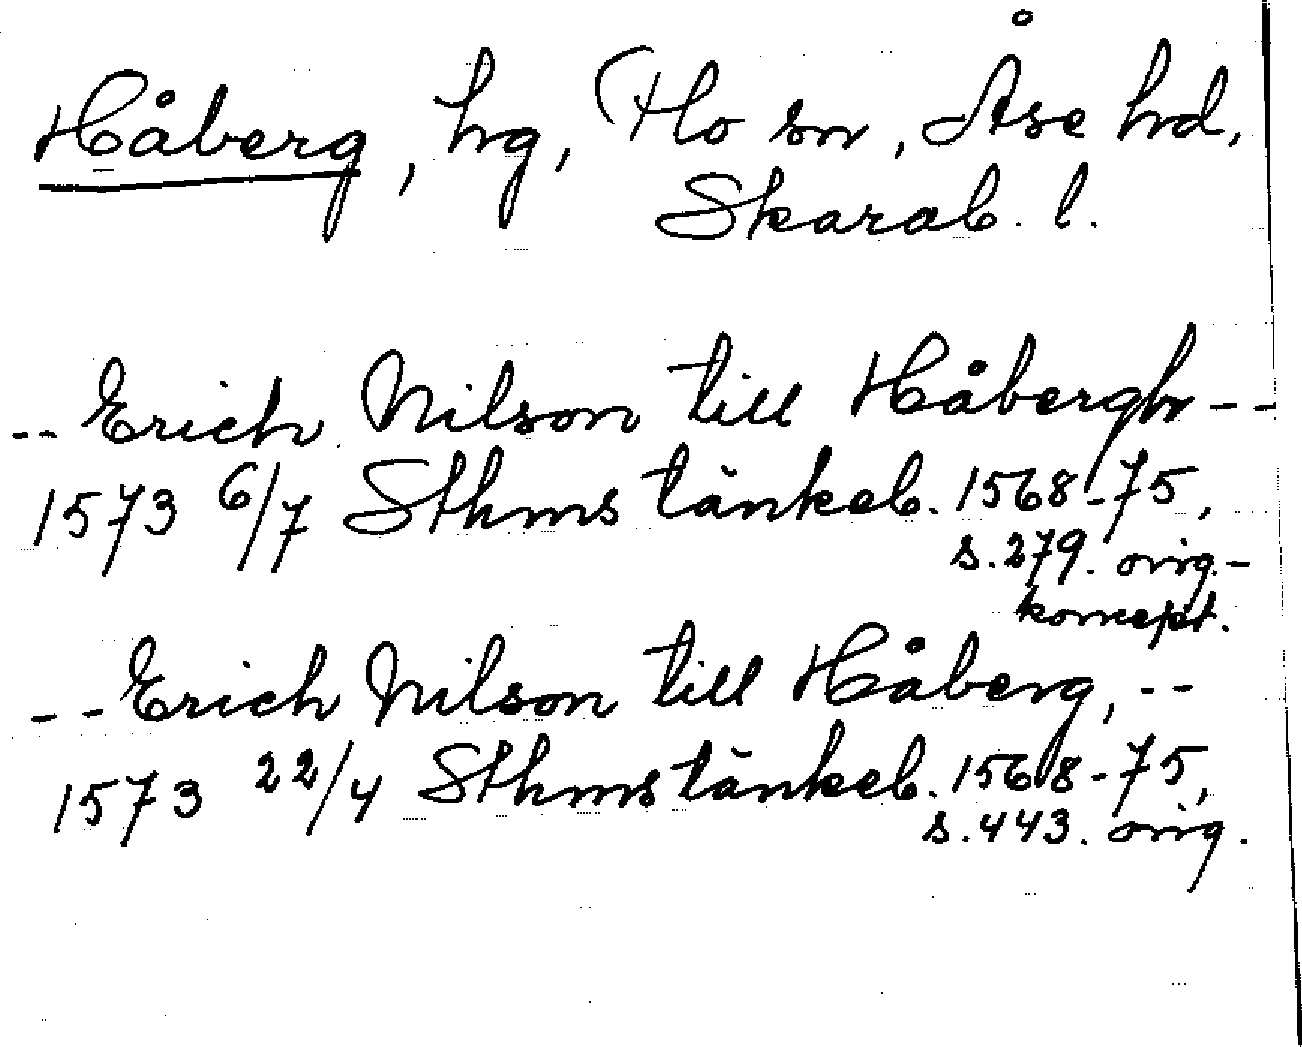 Håberg, hg, (Flo sn, Åse hd,
Skarab. l.
-- Erich Nilson till Håbergh --
1573 6/7 Sthms tänkeb. 1568-75,
s. 279. orig.-
koncept.
-- Erich Nilson till Håberg, --
1573 22/4 Sthms tänkeb. 1568-75,
s. 443. orig.